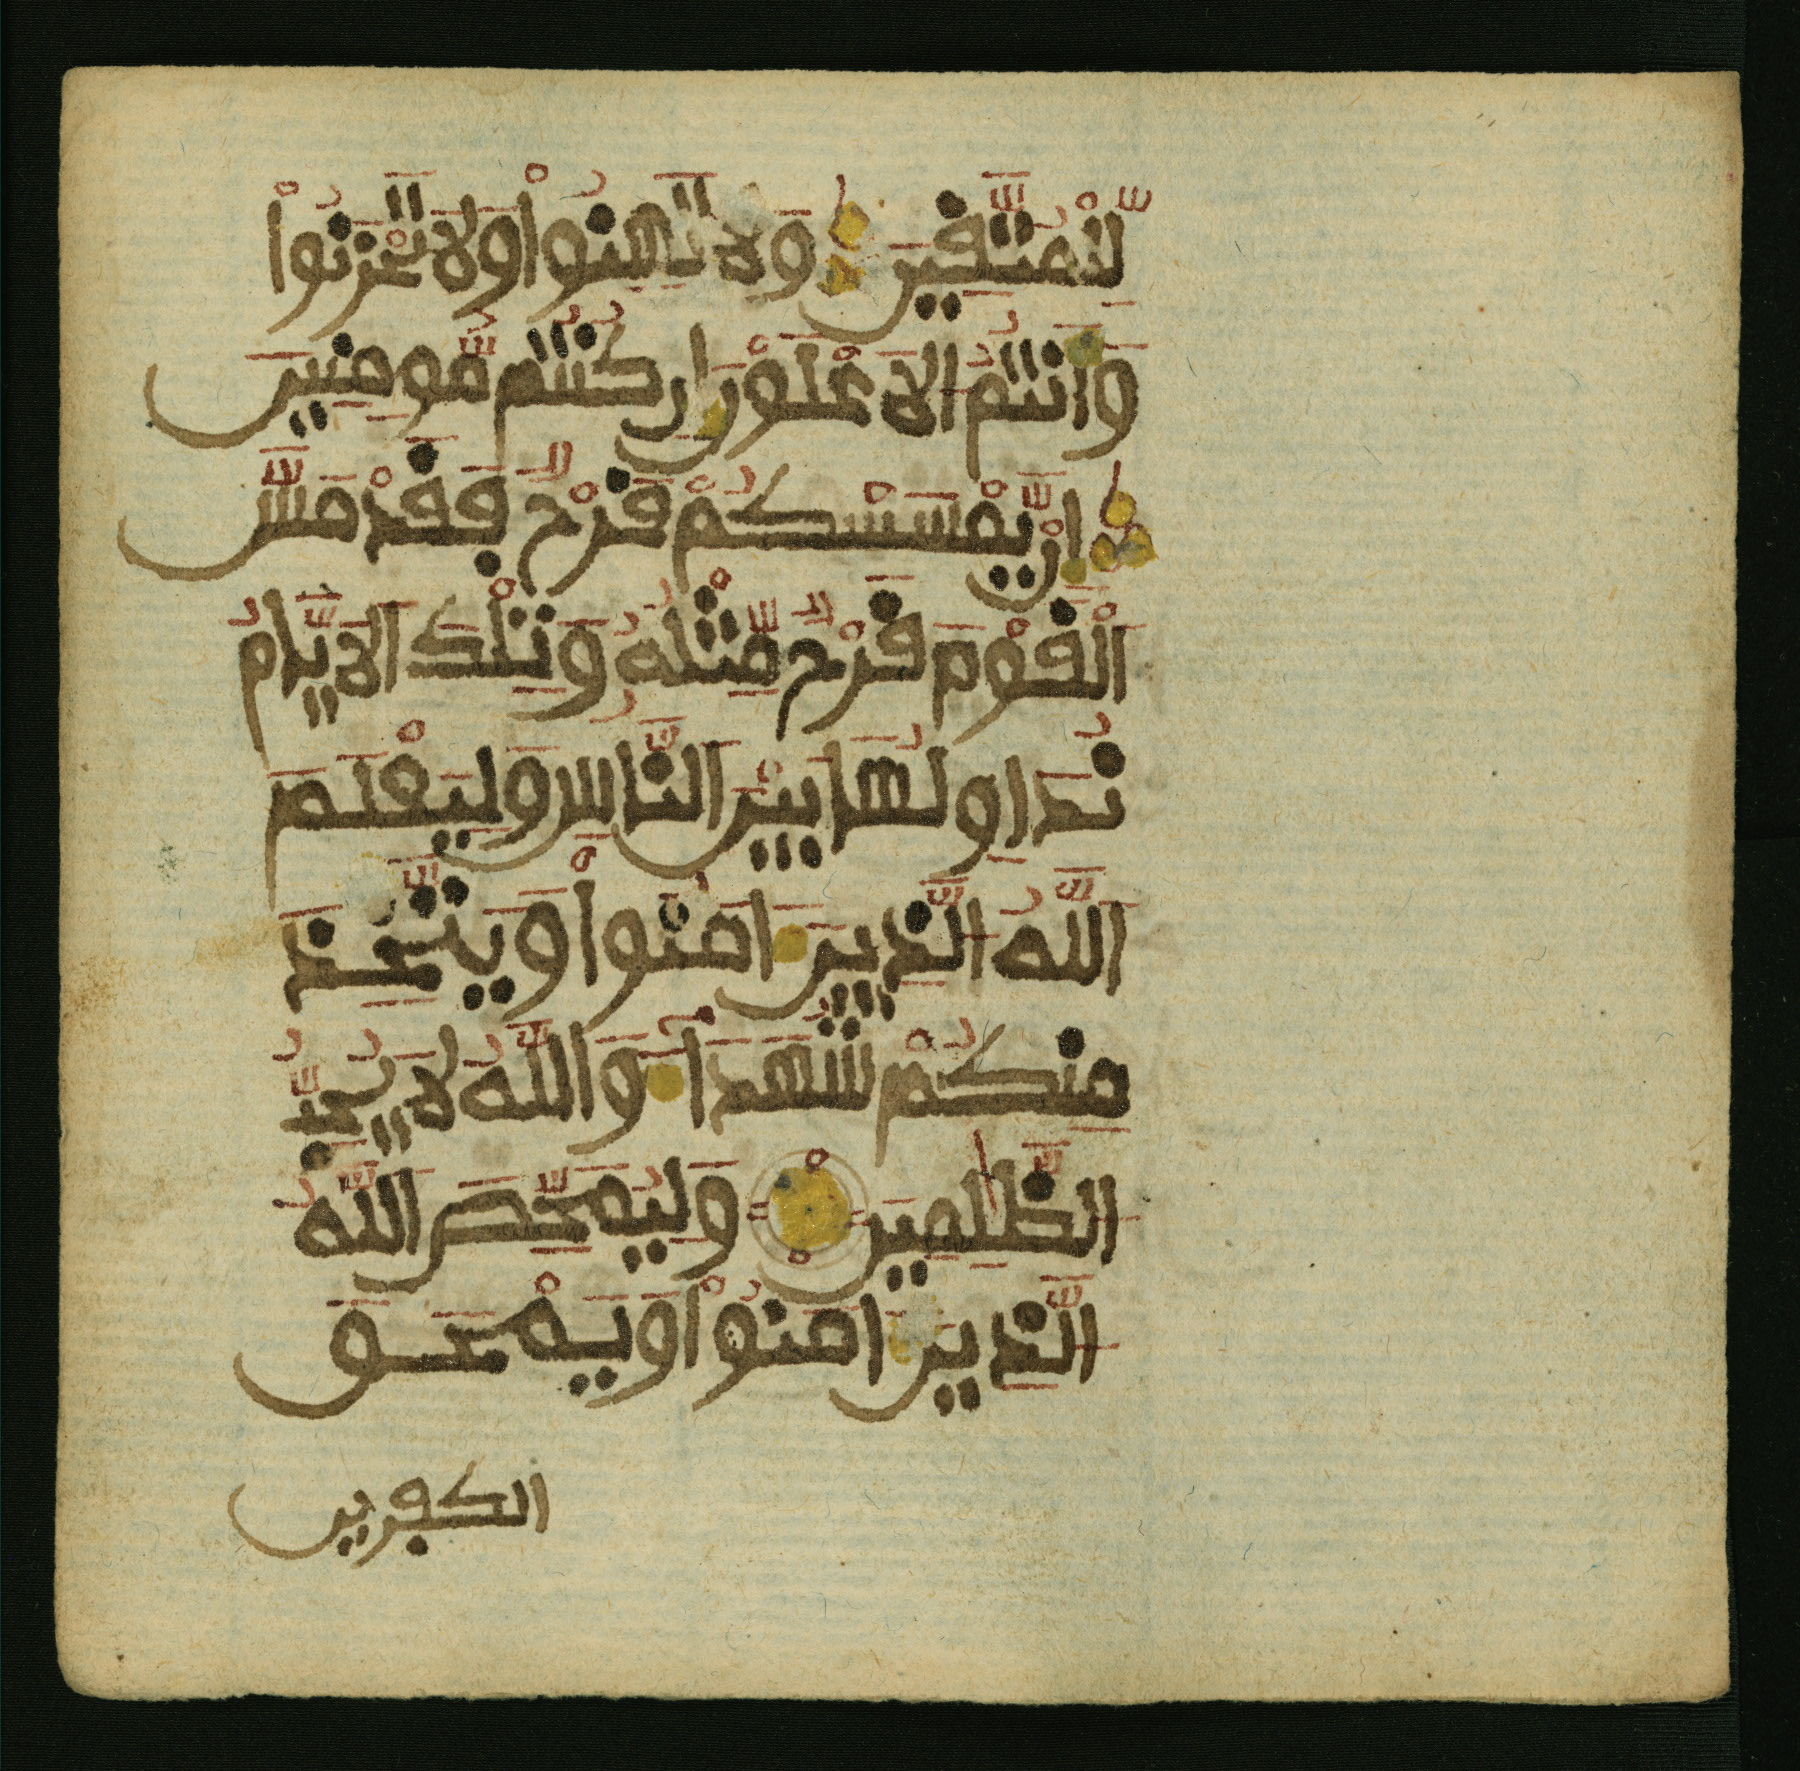 لِّلْمُتَّقِينَ وَلَا تَهِنُواْ وَلَا تَحْزَنُواْ
وَأَنتُمُ الَاعْلَوْنَ إِن كُنتُم مُّومِنِينَ
إِنْ يَّمْسَسْكُمْ قَرْحٌ فَقَدْ مَسَّ
الْقَوْمَ قَرْحٌ مِّثْلُهُ وَتِلْكَ الَايَّامُ
نُدَاوِلُهَا بَيْنَ النَّاسِ وَلِيَعْلَمَ
اللَّهُ الَّذِينَ ءَامَنُواْ وَيَتَّخِذَ
مِنكُمْ شُهَدَآءَ وَاللَّهُ لَا يُحِبُّ
الظَّٰلِمِينَ وَلِيُمَحِّصَ اللَّهُ
الَّذِينَ ءَامَنُواْ وَيَمْحَقَ
الكفرين